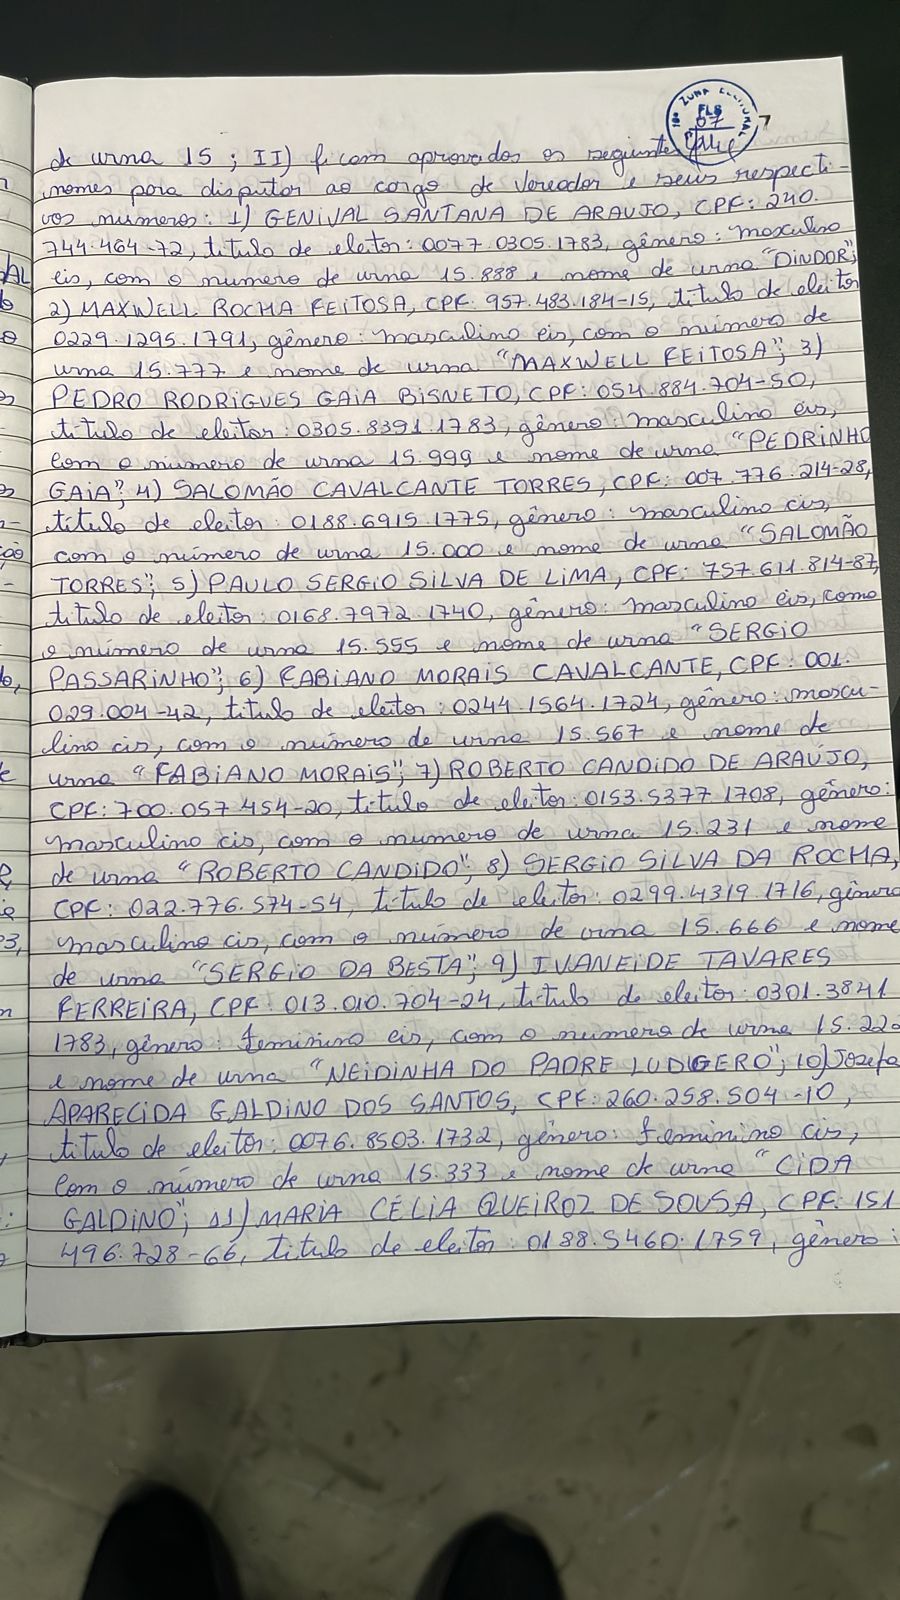 ZONA ELEITORAL
FLS
07
de urna 15; II) ficam aprovados os seguintes
nomes para disputar ao cargo de Vereador e seus respecti-
vos numeros: 1) GENIVAL SANTANA DE ARAUJO, CPF: 240.
744.464-72, titulo de eleitor: 0077.0305.1783, gênero: masculino
cis, com o numero de urna 15.888 e nome de urna "DINDOR";
2) MAXWELL ROCHA FEITOSA, CPF: 957.483.184-15, titulo de eleitor
0229.1295.1791, gênero: masculino cis, com o número de
urna 15.777 e nome de urna "MAXWELL FEITOSA"; 3)
PEDRO RODRIGUES GAIA BISNETO, CPF: 054.884.704-50,
titulo de eleitor: 0305.8391.1783, gênero: masculino cis,
com o número de urna 15.999 e nome de urna "PEDRINHO
GAIA"; 4) SALOMÃO CAVALCANTE TORRES, CPF: 007.776.214-28,
titulo de eleitor: 0188.6915.1775, gênero: masculino cis,
com o número de urna 15.000 e nome de urna "SALOMÃO
TORRES"; 5) PAULO SERGIO SILVA DE LIMA, CPF: 757.611.814-87,
titulo de eleitor: 0168.7972.1740, gênero: masculino cis, como
o número de urna 15.555 e nome de urna "SERGIO
PASSARINHO"; 6) FABIANO MORAIS CAVALCANTE, CPF: 001.
029.004-42, titulo de eleitor: 0244.1564.1724, gênero: mascu-
lino cis, com o número de urna 15.567 e nome de
urna "FABIANO MORAIS"; 7) ROBERTO CANDIDO DE ARAÚJO,
CPF: 700.057.454-20, titulo de eleitor: 0153.5377.1708, gênero:
masculino cis, com o numero de urna 15.231 e nome
de urna "ROBERTO CANDIDO"; 8) SERGIO SILVA DA ROCHA,
CPF: 022.776.574-54, titulo de eleitor: 0299.4319.1716, gênero
masculino cis, com o número de urna 15.666 e nome
de urna "SERGIO DA BESTA"; 9) IVANEIDE TAVARES
FERREIRA, CPF: 013.010.704-24, titulo de eleitor: 0301.3841
1783, gênero: feminino cis, com o número de urna 15.220
e nome de urna "NEIDINHA DO PADRE LUDGERO"; 10) Jozefa
APARECIDA GALDINO DOS SANTOS, CPF: 260.258.504-10,
titulo de eleitor: 0076.8503.1732, gênero: feminino cis,
com o número de urna 15.333 e nome de urna "CIDA
GALDINO"; 11) MARIA CÉLIA QUEIROZ DE SOUSA, CPF: 151
496.728-66, titulo de eleitor: 0138.5460.1759, gênero: